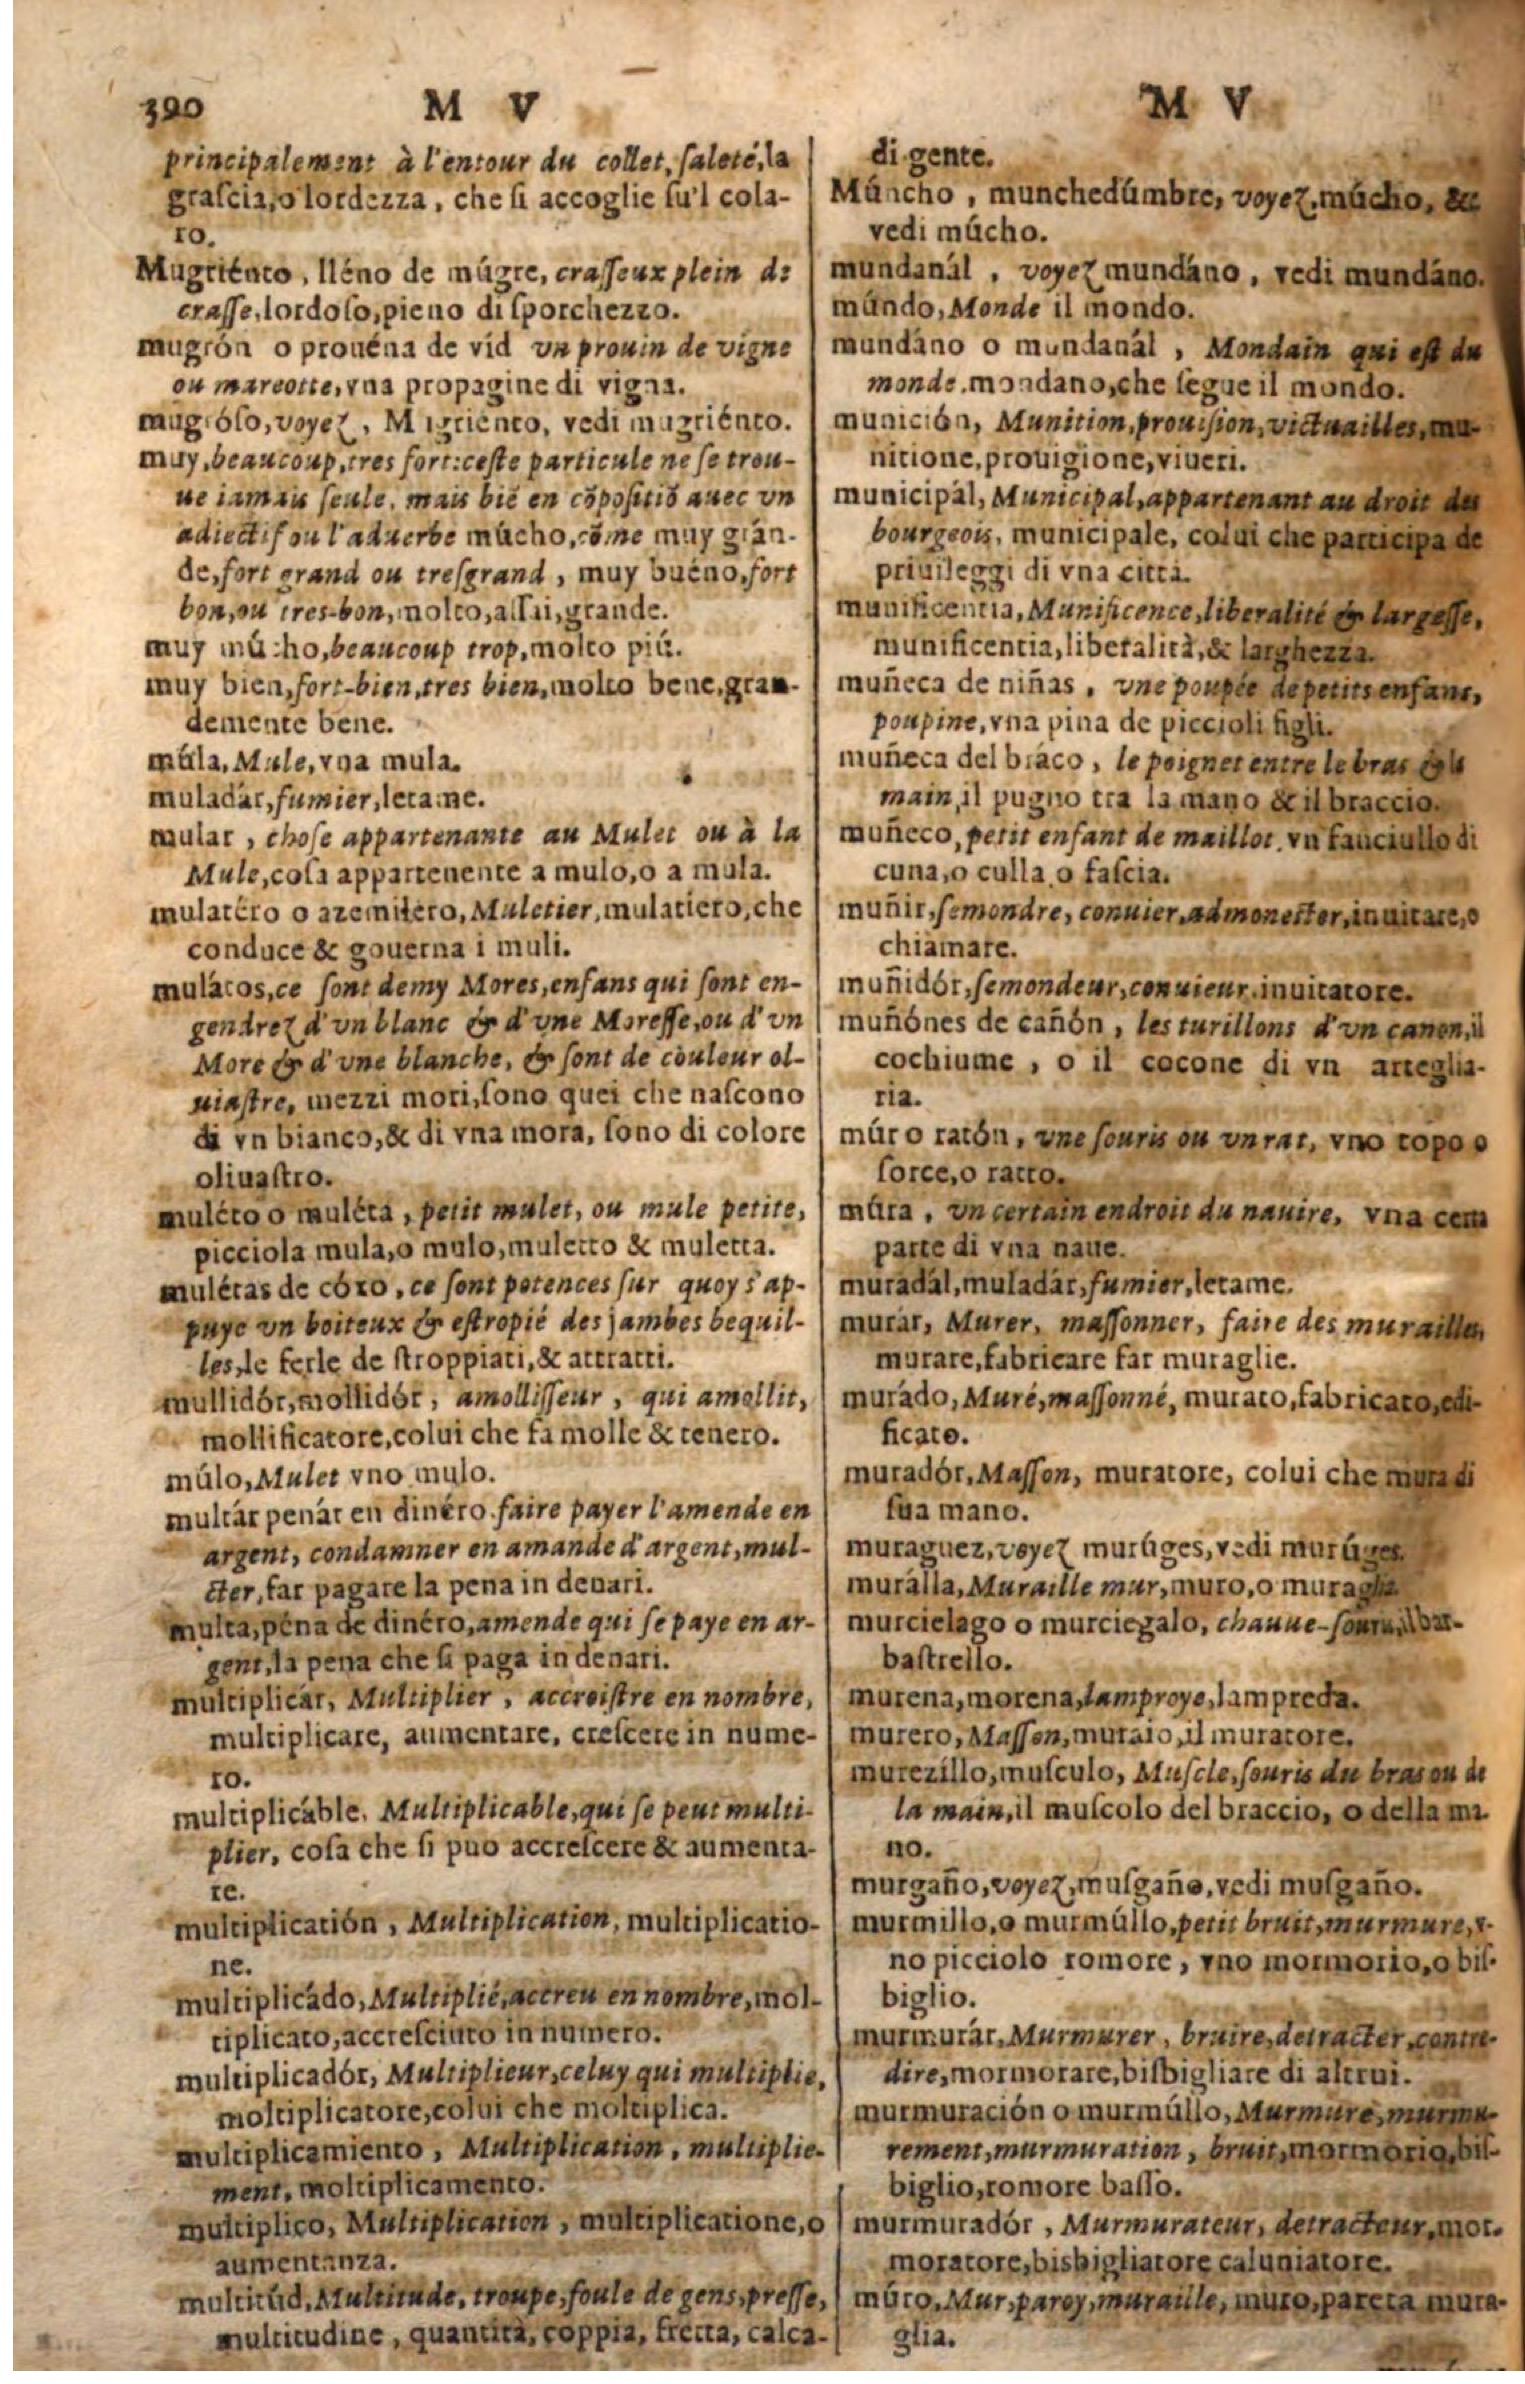 390 M V
principalement à l'entour du collet, ſaleté, la
graſcia, o lordezza, che ſi accoglie ſu'l cola-
ro.
Mugriénto, lléno de múgre, craſſeux plein de
craſſe, lordoſo, pieno di ſporchezzo.
mugrón o prouéna de vid vn prouin de vigne
ou marcotte, vna propagine di vigna.
mugróſo, voyez, Mugriento, vedi mugriénto.
muy, beaucoup, tres fort: ceſte particule ne ſe trou-
ue iamais ſeule, mais biē en cōpoſitiō auec vn
adiectif ou l'aduerbe múcho, cōme muy grán-
de, fort grand ou treſgrand, muy buéno, fort
bon, ou tres-bon, molto, aſſai, grande.
muy múcho, beaucoup trop, molto piú.
muy bien, fort-bien, tres bien, molto bene, gran-
demente bene.
múla, Mule, vna mula.
muladár, fumier, letame.
mular, choſe appartenante au Mulet ou à la
Mule, coſa appartenente a mulo, o a mula.
mulatéro o azemiléro, Muletier, mulatiero, che
conduce & gouerna i muli.
mulátos, ce ſont demy Mores, enfans qui ſont en-
gendrez d'vn blanc & d'vne Moreſſe, ou d'vn
More & d'vne blanche, & ſont de couleur ol-
iuaſtre, mezzi mori, ſono quei che naſcono
di vn bianco, & di vna mora, ſono di colore
oliuaſtro.
muléto o muléta, petit mulet, ou mule petite,
picciola mula, o mulo, muletto & muletta.
mulétas de cóxo, ce ſont potences ſur quoy s'ap-
puye vn boiteux & eſtropié des jambes bequil-
les, le ferle de ſtroppiati, & attratti.
mullidór, mollidór, amolliſſeur, qui amollit,
mollificatore, colui che fa molle & tenero.
múlo, Mulet vno mulo.
multár penár en dinéro. faire payer l'amende en
argent, condamner en amande d'argent, mul-
cter, far pagare la pena in denari.
multa, péna de dinéro, amende qui ſe paye en ar-
gent, la pena che ſi paga in denari.
multiplicár, Multiplier, accroiſtre en nombre,
multiplicare, aumentare, creſcere in nume-
ro.
multiplicáble, Multiplicable, qui ſe peut multi-
plier, coſa che ſi puo accreſcere & aumenta-
re.
multiplicatión, Multiplication, multiplicatio-
ne.
multiplicádo, Multiplié, accreu en nombre, mol-
tiplicato, accreſciuto in numero.
multiplicadór, Multiplieur, celuy qui multiplie,
moltiplicatore, colui che moltiplica.
multiplicamiento, Multiplication, multiplie-
ment, moltiplicamento.
multiplico, Multiplication, multiplicatione, o
aumentanza.
multitúd, Multitude, troupe, foule de gens, preſſe,
multitudine, quantità, coppia, fretta, calca-
M V
di gente.
Múncho, munchedúmbre, voyez, múcho, &c
vedi múcho.
mundanál, voyez mundáno, vedi mundáno.
múndo, Monde il mondo.
mundáno o mundanál, Mondain qui eſt du
monde, mondano, che ſegue il mondo.
munición, Munition, prouiſion, victuailles, mu-
nitione, prouigione, viueri.
municipál, Municipal, appartenant au droit des
bourgeois, municipale, colui che participa de
priuileggi di vna città.
munificentia, Munificence, liberalité & largeſſe,
munificentia, liberalità, & larghezza.
muñeca de niñas, vne poupée de petits enfans,
poupine, vna pina de piccioli figli.
muñeca del bráco, le poignet entre le bras & la
main, il pugno tra la mano & il braccio.
muñeco, petit enfant de maillot, vn fanciullo di
cuna, o culla, o faſcia.
muñir, ſemondre, conuier, admoneſter, inuitare, o
chiamare.
muñidór, ſemondeur, conuieur, inuitatore.
muñónes de cañón, les turillons d'vn canon, il
cochiume, o il cocone di vn arteglia-
ria.
múr o ratón, vne ſouris ou vn rat, vno topo o
ſorce, o ratto.
múra, vn certain endroit du nauire, vna certa
parte di vna naue.
muradál, muladár, fumier, letame.
murár, Murer, maſſonner, faire des murailles,
murare, fabricare far muraglie.
murádo, Muré, maſſonné, murato, fabricato, edi-
ficato.
muradór, Maſſon, muratore, colui che mura di
ſua mano.
muraguez, voyez murúges, vedi murúges.
murálla, Muraille mur, muro, o muraglia
murcielago o murciegalo, chauue-ſouris, il bar-
baſtrello.
murena, morena, lamproye, lampreda.
murero, Maſſon, muraio, il muratore.
murezíllo, muſculo, Muſcle, ſouris du bras ou de
la main, il muſcolo del braccio, o della ma
no.
murgaño, voyez, muſgaño, vedi muſgaño.
murmillo, o murmúllo, petit bruit, murmure, v-
no picciolo romore, vno mormorio, o biſ-
biglio.
murmurár, Murmurer, bruire, detracter, contre-
dire, mormorare, biſbigliare di altrui.
murmuración o murmúllo, Murmure, murmu-
rement, murmuration, bruit, mormorio, biſ-
biglio, romore baſſo.
murmuradór, Murmurateur, detracteur, mor-
moratore, bisbigliatore caluniatore.
múro, Mur, paroy, muraille, muro, pareta mura-
glia.